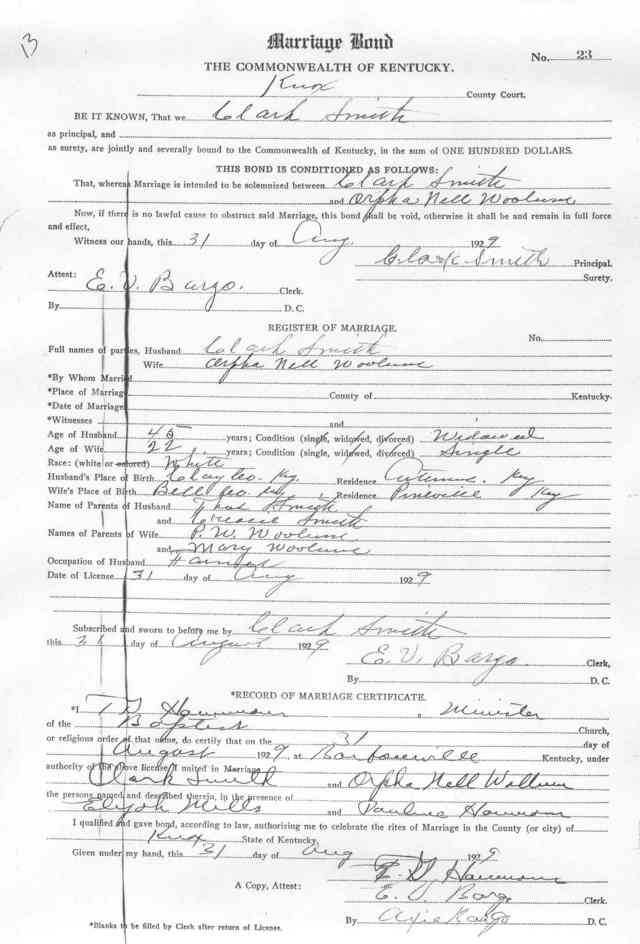 13
Marriage Bond
No. 23
THE COMMONWEALTH OF KENTUCKY.
Knox County Court.
BE IT KNOWN, That we Clark Smith
as principal, and
as surety, are jointly and severally bound to the Commonwealth of Kentucky, in the sum of ONE HUNDRED DOLLARS.
THIS BOND IS CONDITIONED AS FOLLOWS:
That, whereas Marriage is intended to be solemnized between Clark Smith
and Orpha Nell Woolume
Now, if there is no lawful cause to obstruct said Marriage, this bond shall be void, otherwise it shall be and remain in full force
and effect,
Witness our hands, this 31 day of Aug. 1929
Clark Smith Principal.
Surety.
Attest: E. V. Bargo. Clerk.
By D. C.
REGISTER OF MARRIAGE.
No.
Full names of parties, Husband Clark Smith
Wife Orpha Nell Woolume
*By Whom Married
*Place of Marriage County of Kentucky.
*Date of Marriage
*Witnesses and
Age of Husband 45 years; Condition (single, widowed, divorced) Widowed
Age of Wife 22 years; Condition (single, widowed, divorced) Single
Race: (white or colored) White
Husband's Place of Birth Clay Co. Ky. Residence Ky
Wife's Place of Birth Bell Co. Ky Residence Pineville Ky
Name of Parents of Husband Smith
and Smith
Names of Parents of Wife P. W. Woolume
and Mary Woolume
Occupation of Husband Farmer
Date of License 31 day of Aug 1929
Subscribed and sworn to before me by Clark Smith
this 31 day of August 1929
E. V. Bargo Clerk,
By D. C.
*RECORD OF MARRIAGE CERTIFICATE.
*I, Hammons, a Minister
of the Baptist Church,
or religious order of that name, do certify that on the 31 day of
August 1929, at Barbourville Kentucky, under
authority of the above license, I united in Marriage
Clark Smith and Orpha Nell Wollum
the persons named and described therein, in the presence of
Elijah Mills and Pauline Hammons
I qualified and gave bond, according to law, authorizing me to celebrate the rites of Marriage in the County (or city) of
Knox State of Kentucky.
Given under my hand, this 31 day of Aug 1929
Hammons
A Copy, Attest: E. V. Bargo Clerk.
By Bargo D. C.
*Blanks to be filled by Clerk after return of License.